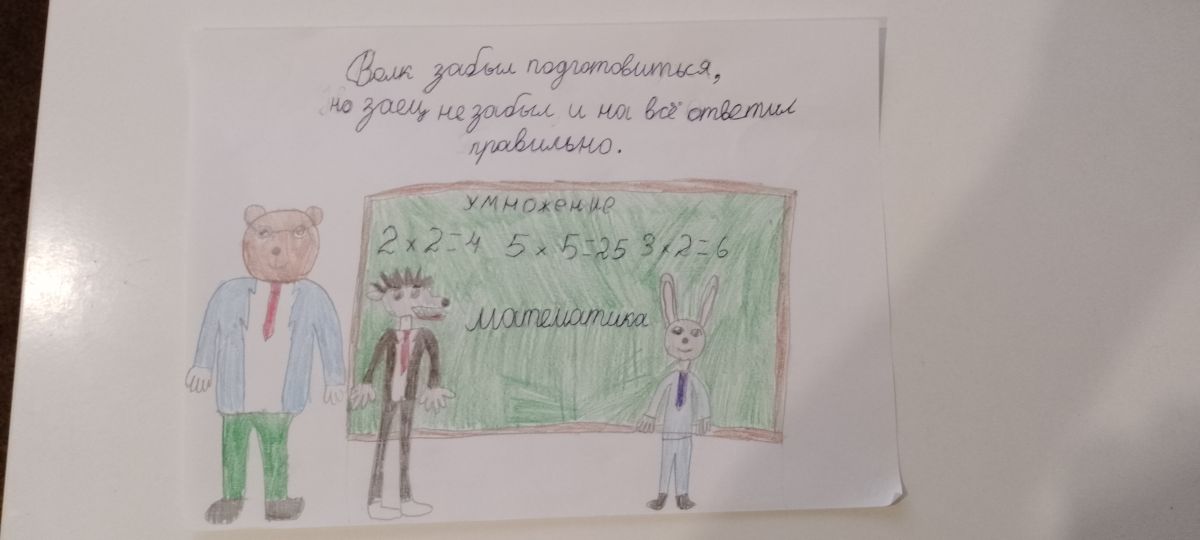 Волк забыл подготовиться,
но заец не забыл и на всё ответил
правильно.
умножение
2 × 2 = 4 5 × 5 = 25 3 × 2 = 6
математика